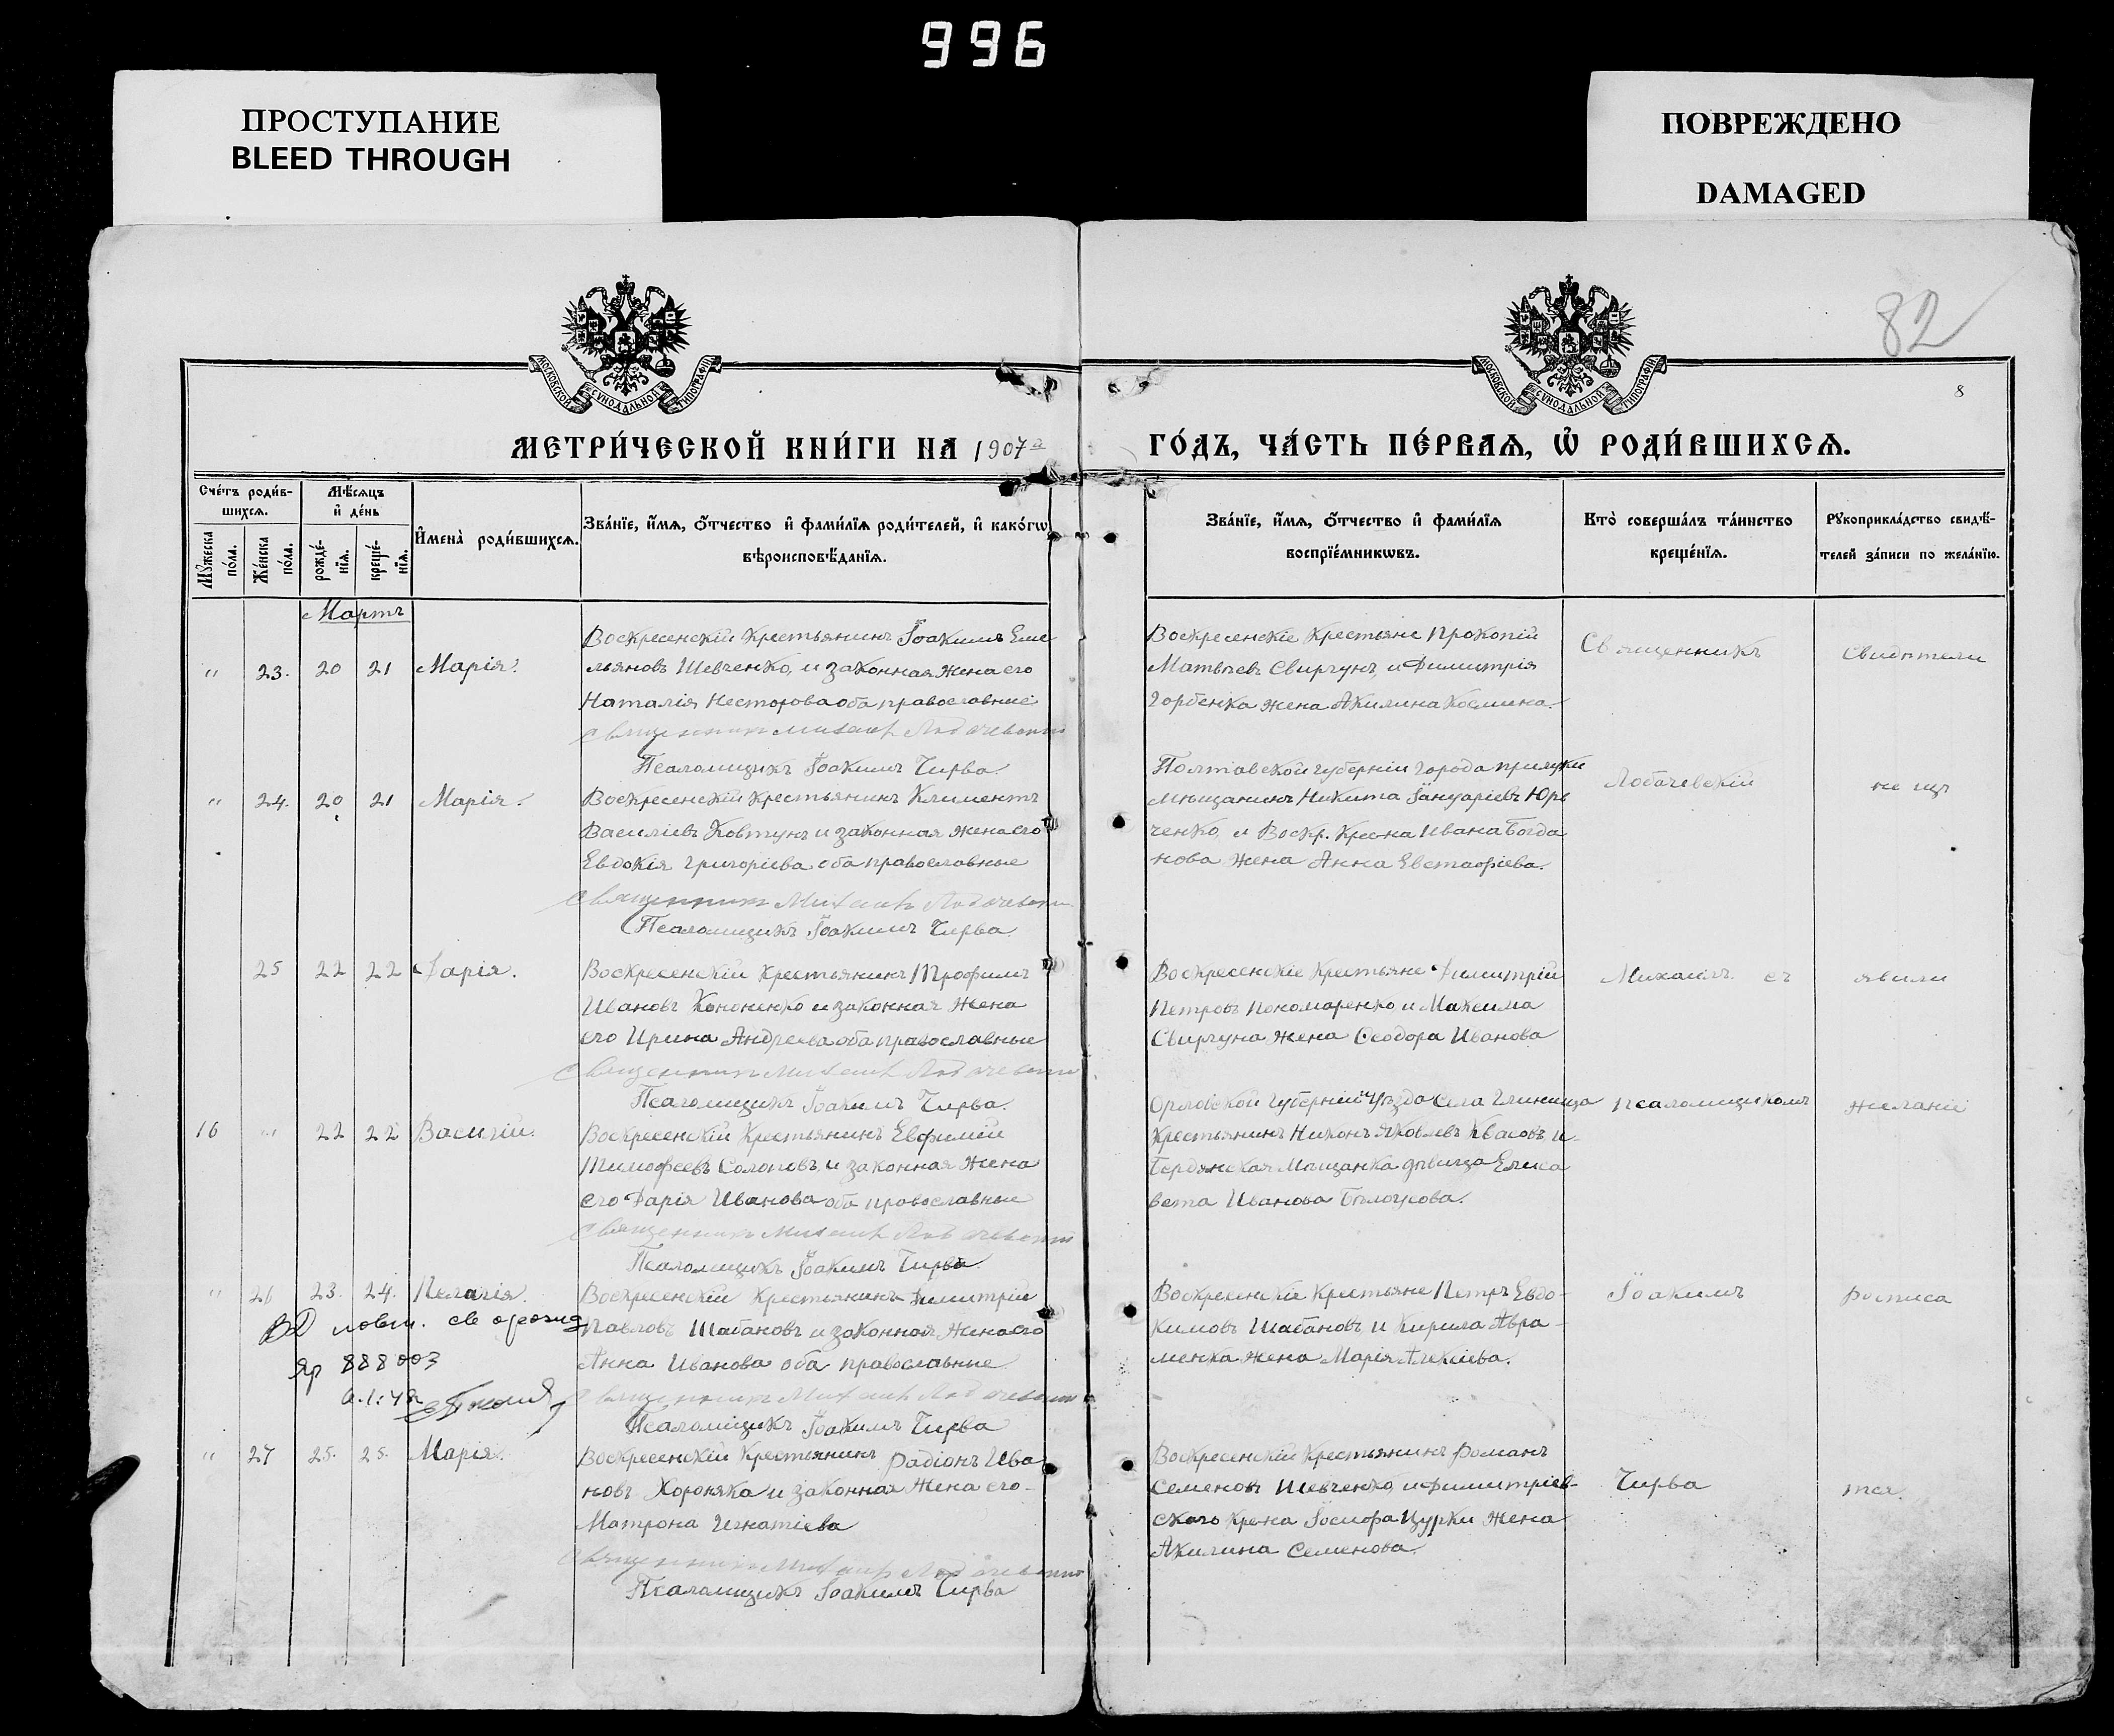 996
ПРОСТУПАНИЕ
BLEED THROUGH
ПОВРЕЖДЕНО
DAMAGED
82
8
МОСКОВСКОЙ СѴНОДАЛЬНОЙ ТИПОГРАФІИ
МОСКОВСКОЙ СѴНОДАЛЬНОЙ ТИПОГРАФІИ
МЕТРИ́ЧЕСКОЙ КНИ́ГИ НА 1907 ГО́ДЪ, ЧА́СТЬ ПЕ́РВАѦ, Ѡ҆ РОДИ́ВШИХСѦ.
Сче́тъ роди́в-
шихсѧ.
Мꙋ́жеска по́ла.
Же́нска по́ла.
Мѣ́сѧцъ
и҆ де́нь
рожде́-
нїѧ.
креще́-
нїѧ.
И҆мена̀ роди́вшихсѧ.
Зва́нїе, и҆́мѧ, ѻ҆́тчество и҆ фами́лїѧ роди́телей, и҆ како́гѡ
вѣроисповѣ́данїѧ.
Зва́нїе, и҆́мѧ, ѻ҆́тчество и҆ фами́лїѧ
воспрїе́мникѡвъ.
Кто̀ соверша́лъ та́инство
креще́нїѧ.
Рꙋкоприкла́дство свидѣ́-
телей за́писи по жела́нїю.
Мартъ
" 23. 20 21 Марія.
Воскресенскій крестьянинъ Іоакимъ Еме
льяновъ Шевченко, и законная жена его
Наталія Несторова оба православные
Священникъ Михаилъ Лобачевскій
Псаломщикъ Іоакимъ Чирва.
Воскресенскіе крестьяне Прокопій
Матвѣевъ Свиргунъ, и Димитрія
Горбенка жена Акилина Космина.
Священникъ
Свидѣтели
" 24. 20 21 Марія.
Воскресенскій крестьянинъ Климентъ
Василіевъ Ковтунъ и законная жена его
Евдокія Григоріева оба православные
Священникъ Михаилъ Лобачевскій
Псаломщикъ Іоакимъ Чирва.
Полтавской губерніи города Прилуки
мѣщанинъ Никита Іануаріевъ Юр
ченко, и Воскр. кре-на Ивана Богда
нова жена Анна Евстафіева.
Лобачевскій
не изъ
25 22 22 Дарія.
Воскресенскій крестьянинъ Трофимъ
Ивановъ Кононенко и законная жена
его Ирина Андреева оба православные
Священникъ Михаилъ Лобачевскій
Псаломщикъ Іоакимъ Чирва.
Воскресенскіе крестьяне Димитрій
Петровъ Пономаренко, и Максима
Свиргуна жена Ѳеодора Иванова
Михаилъ съ
явили
16 " 22 22 Василій.
Воскресенскій крестьянинъ Евфимій
Тимофеевъ Солоповъ, и законная жена
его Дарія Иванова оба православные
Священникъ Михаилъ Лобачевскій
Псаломщикъ Іоакимъ Чирва
Орловской губерніи уѣзда села Глинища
крестьянинъ Никонъ Яковлевъ Квасовъ и
Бердянская мѣщанка дѣвица Елиса
вета Иванова Бѣлоусова.
псаломщикомъ
желаніе
" 26 23. 24. Пелагія.
Воскресенскій крестьянинъ Димитрій
Павловъ Шабановъ и законная жена его
Анна Иванова оба православные
Священникъ Михаилъ Лобачевскій
Псаломщикъ Іоакимъ Чирва
Воскресенскіе крестьяне Петръ Евдо-
кимовъ Шабановъ, и Кирила Авра-
менка жена Марія Алексіева.
Іоакимъ
росписа
888003
" 27 25. 25. Марія.
Воскресенскій крестьянинъ Радіонъ Ива
новъ Хороняка и законная жена его
Матрона Игнатіева
Священникъ Михаилъ Лобачевскій
Псаломщикъ Іоакимъ Чирва
Воскресенскій крестьянинъ Романъ
Семеновъ Шевченко, и Димитріев-
скаго кре-на Іосифа Цурки жена
Акилина Семенова.
Чирва
тся.